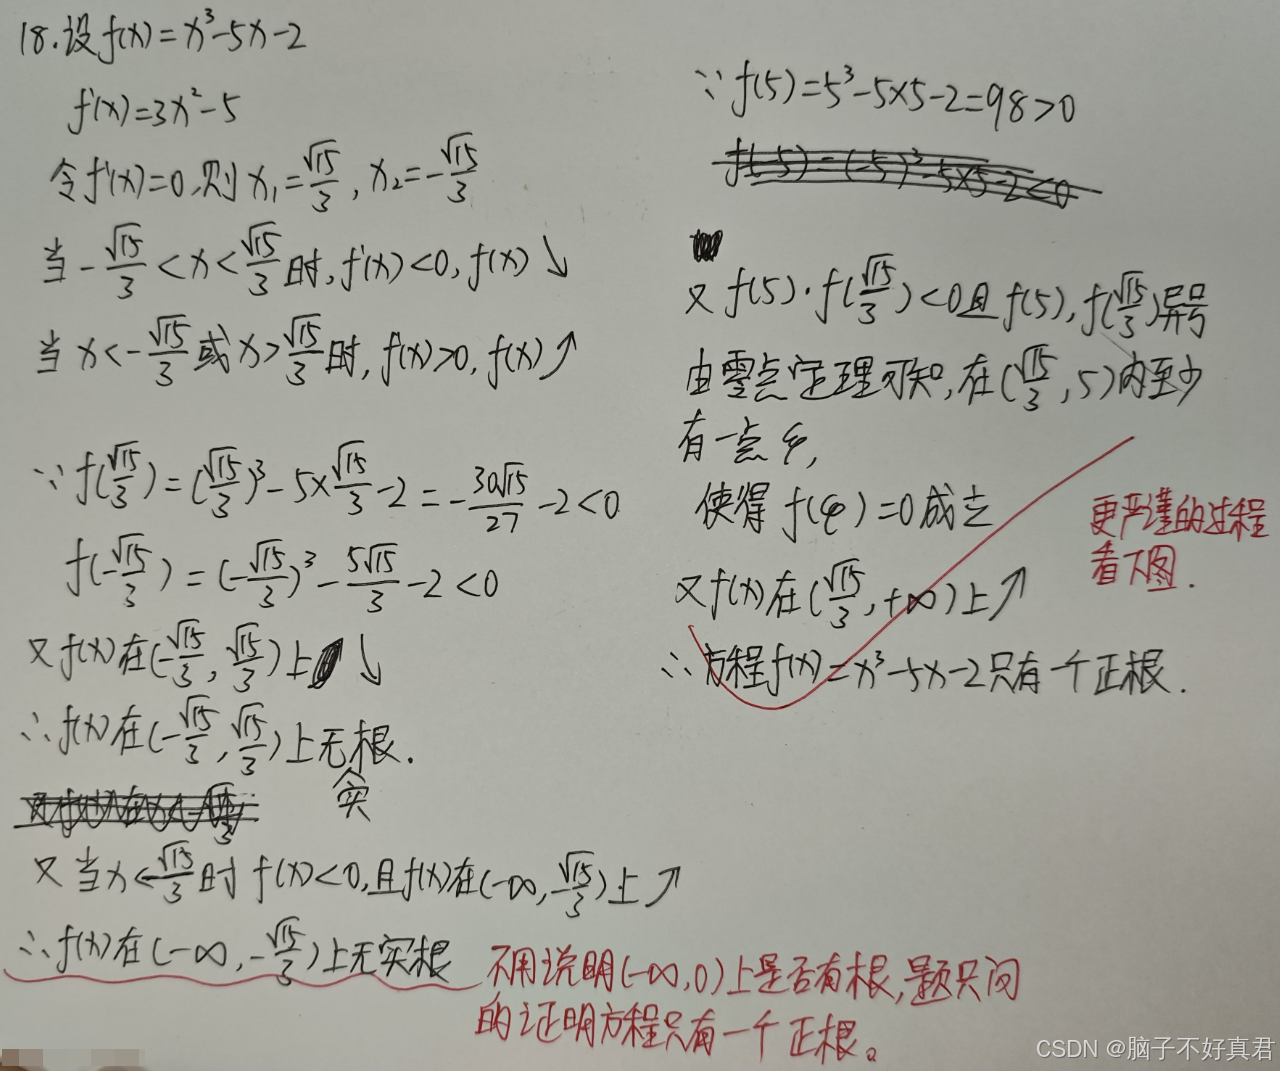 18.设f(x)=x³-5x-2
f'(x)=3x²-5
令f'(x)=0,则x₁=√15/3,x₂=-√15/3
当-√15/3<x<√15/3时,f'(x)<0,f(x)↘
当x<-√15/3或x>√15/3时,f'(x)>0,f(x)↗
∵f(√15/3)=(√15/3)³-5×√15/3-2=-30√15/27-2<0
f(-√15/3)=(-√15/3)³-5√15/3-2<0
又f(x)在(-√15/3,√15/3)上↘
∴f(x)在(-√15/3,√15/3)上无实根.
又当x<-√15/3时f(x)<0,且f(x)在(-∞,-√15/3)上↗
∴f(x)在(-∞,-√15/3)上无实根
不用说明(-∞,0)上是否有根,题只问
的证明方程只有一个正根。
∵f(5)=5³-5×5-2=98>0
f(-5)=(-5)³-5×5-2<0
又f(5)·f(√15/3)<0且f(5),f(√15/3)异号
由零点定理可知,在(√15/3,5)内至少
有一点φ,
使得f(φ)=0成立
又f(x)在(√15/3,+∞)上↗
∴方程f(x)=x³-5x-2只有一个正根.
更严谨的过程
看下图.
CSDN @脑子不好真君